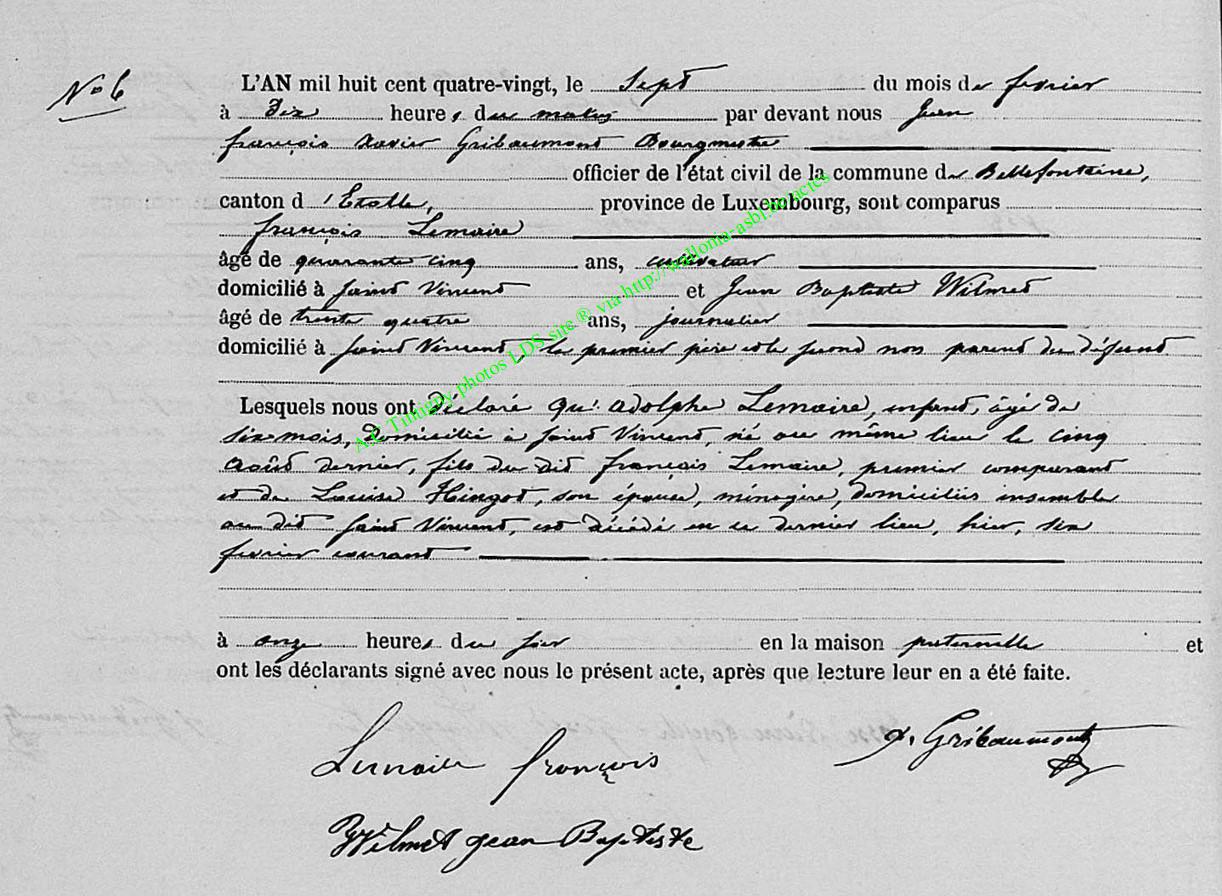 No 6
L'AN mil huit cent quatre-vingt, le Sept du mois de fevrier
à Dix heures du matin par devant nous Jean
françois Xavier Gribaumont Bourgmestre
officier de l'état civil de la commune de Bellefontaine,
canton d'Etalle, province de Luxembourg, sont comparus
françois Lemaire
âgé de quarante cinq ans, cultivateur
domicilié à Saint Vincent et Jean Baptiste Wilmet
âgé de trente quatre ans, journalier
domicilié à Saint Vincent, le premier père et le second non parent du défunt
Lesquels nous ont déclaré qu'adolphe Lemaire, enfant, âgé de
six mois, domicilié à Saint Vincent, né au même lieu le cinq
Août dernier, fils du dit françois Lemaire, premier comparant
et de Louise Hingot, son épouse, ménagère, domiciliés ensemble
au dit Saint Vincent, est décédé en ce dernier lieu, hier, six
fevrier courant
à onze heures du soir en la maison paternelle et
ont les déclarants signé avec nous le présent acte, après que lecture leur en a été faite.
Lemaire françois
x. Gribaumont
Wilmet jean Baptiste
A.C. Tintigny photos LDS site ® via http://wallonia-asbl.be/actes